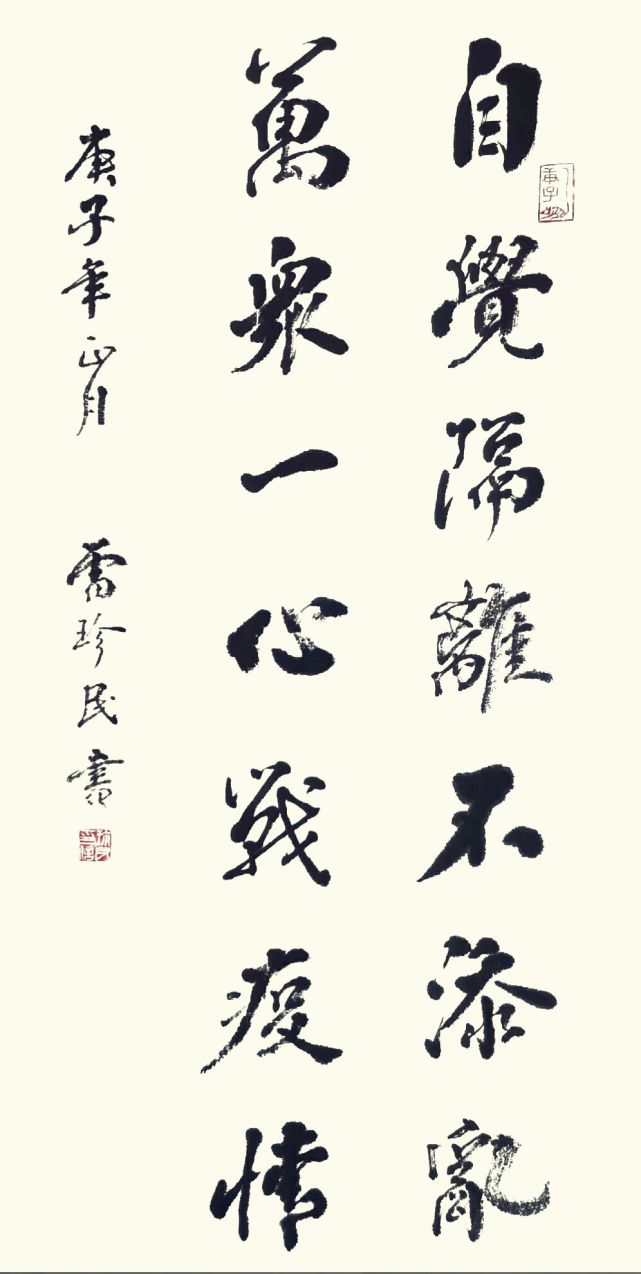 自覺隔離不添亂
萬衆一心戰疫情
庚子年正月
雷珍民書